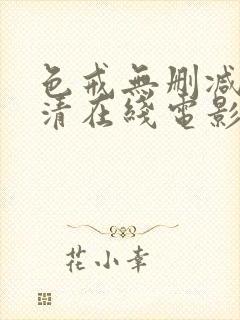 色戒無刪减
清在綫電影
花小幸